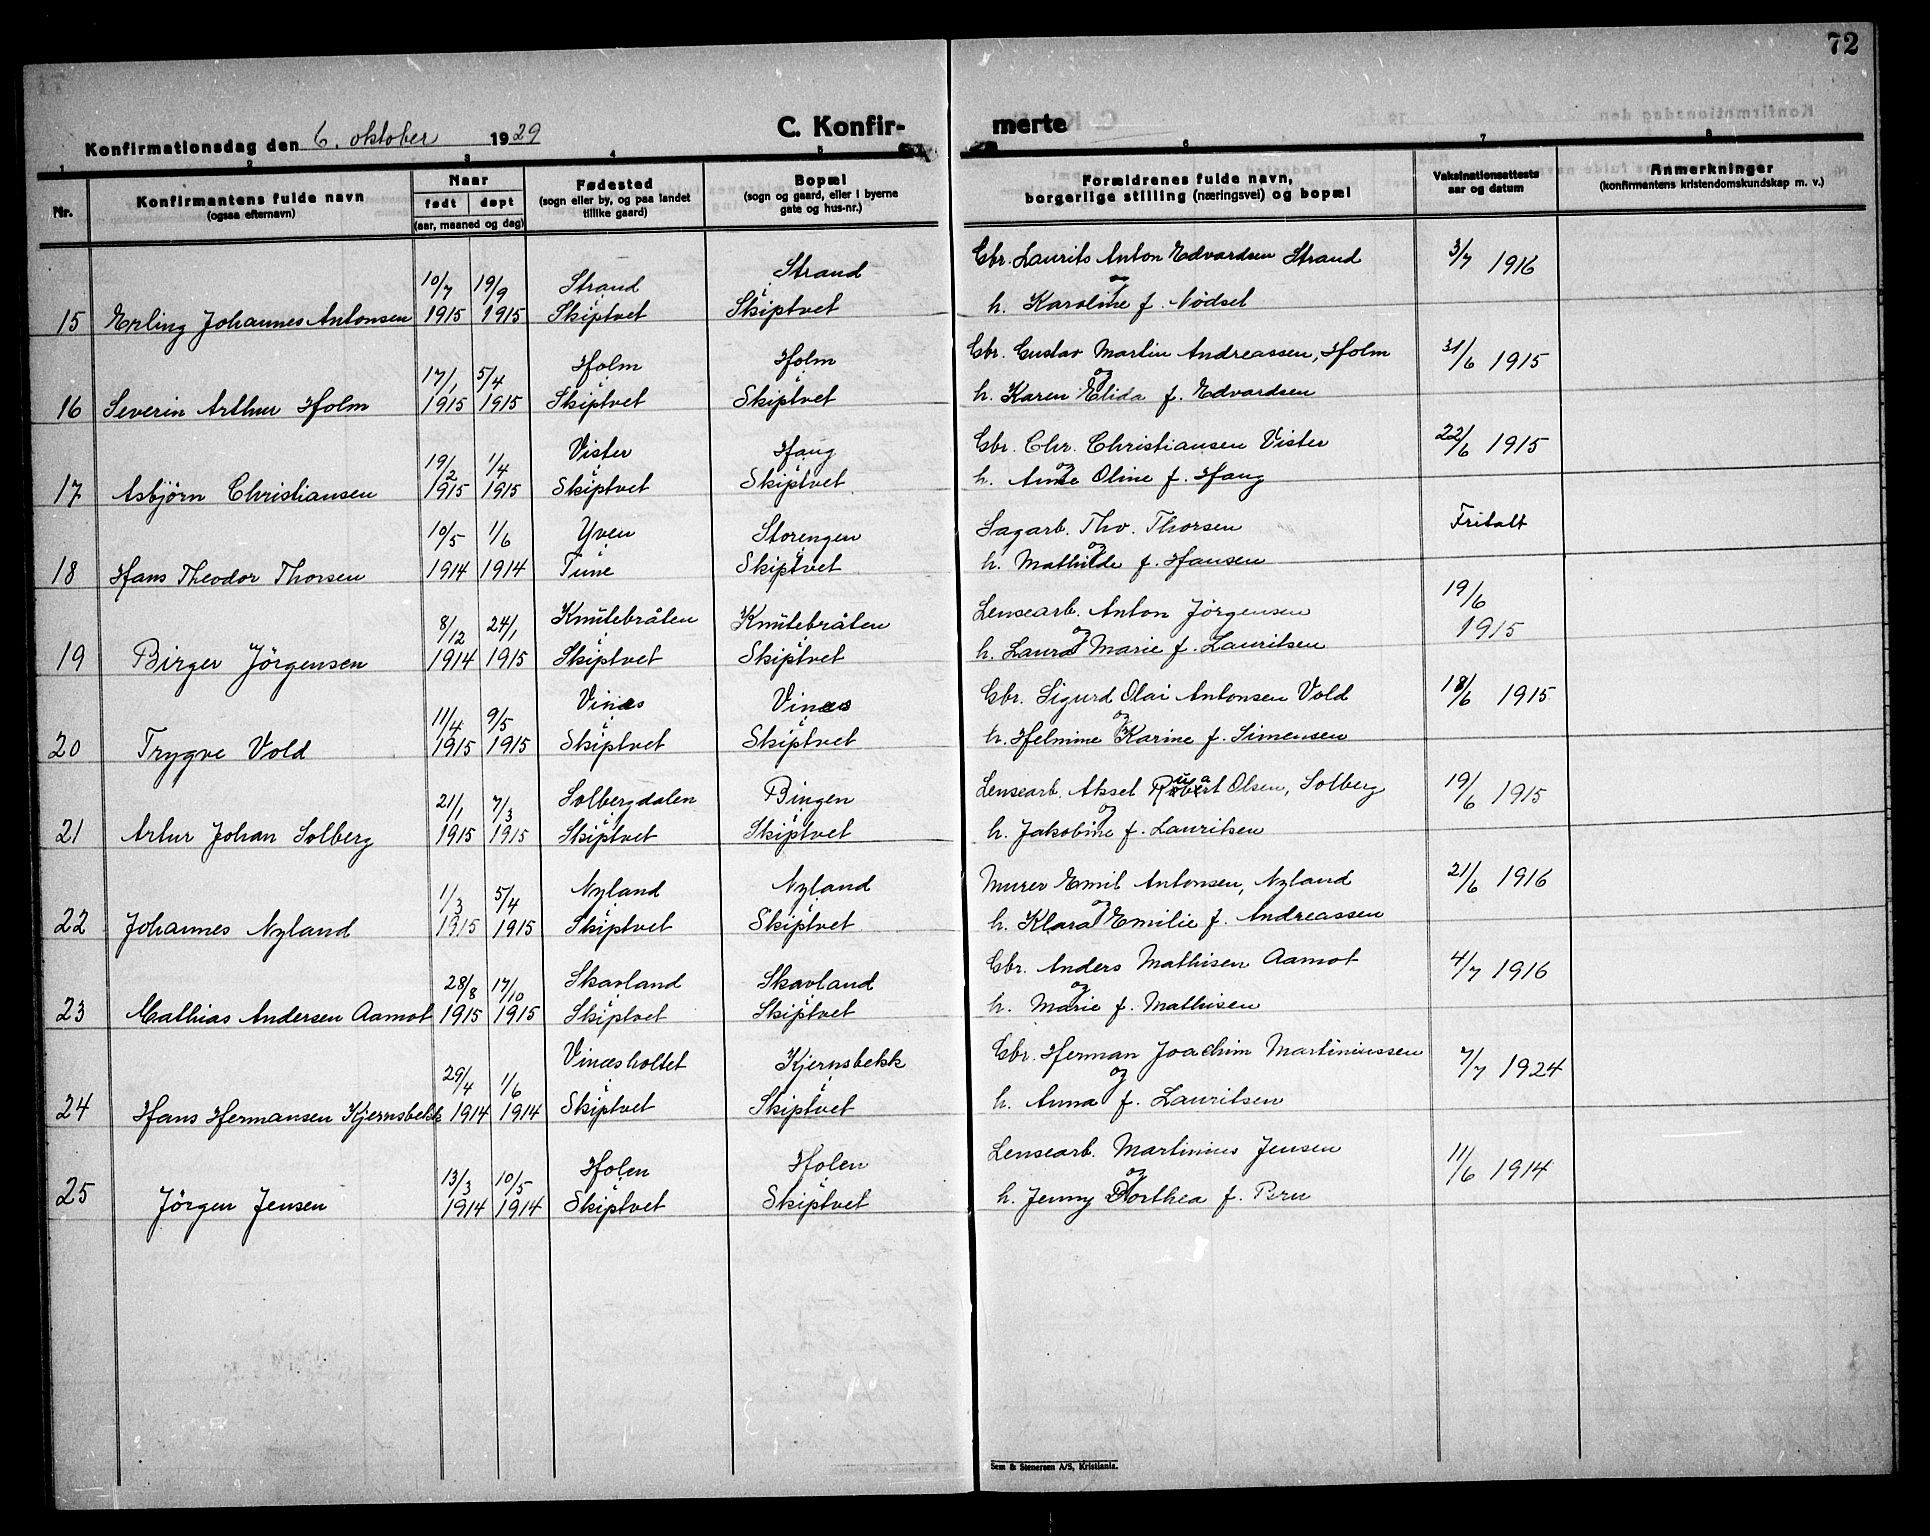 72
Konfirmationsdag den 6. oktober 1929
C. Konfir-
merte
1 2 3 4 5 6 7 8
Nr.
Konfirmantens fulde navn
(ogsaa efternavn)
Naar
født døpt
(aar, maaned og dag)
Fødested
(sogn eller by, og paa landet
tillike gaard)
Bopæl
(sogn og gaard, eller i byerne
gate og hus-nr.)
Forældrenes fulde navn,
borgerlige stilling (næringsvei) og bopæl
Vaksinationsattests
aar og datum
Anmerkninger
(konfirmantens kristendomskundskap m. v.)
10/7 19/9 Strand Strand Gbr. Laurits Anton Edvardsen Strand 3/7 1916
og
15 Erling Johannes Antonsen 1915 1915 Skiptvet Skiptvet h. Karoline f. Nödset
17/1 5/4 Holm Holm Gbr. Gustav Martin Andreassen, Holm 31/6 1915
og
16 Severin Arthur Holm 1915 1915 Skiptvet Skiptvet h. Karen Elida f. Edvardsen
19/2 1/4 Vister Haug Gbr. Chr. Christiansen Vister 22/6 1915
og
17 Asbjörn Christiansen 1915 1915 Skiptvet Skiptvet h. Anne Oline f. Haug
10/5 1/6 Yven Storengen Sagarb. Thv. Thorsen Fritalt
og
18 Hans Theodor Thorsen 1914 1914 Tune Skiptvet h. Mathilde f. Hansen
8/12 24/1 Knutebråten Knutebråten Lensearb. Anton Jörgensen 19/6
1915
og
19 Birger Jörgensen 1914 1915 Skiptvet Skiptvet h. Laura Marie f. Lauritsen
11/4 9/5 Vinæs Vinæs Gbr. Sigurd Olai Antonsen Vold 18/6 1915
og
20 Trygve Vold 1915 1915 Skiptvet Skiptvet h. Helmine Karine f. Simensen
21/1 7/3 Solbergdalen Bingen Lensearb. Aksel Olsen, Solberg 19/6 1915
og
21 Artur Johan Solberg 1915 1915 Skiptvet Skiptvet h. Jakobine f. Lauritsen
1/3 5/4 Nyland Nyland Murer Emil Antonsen, Nyland 21/6 1916
og
22 Johannes Nyland 1915 1915 Skiptvet Skiptvet h. Klara Emilie f. Andreassen
28/8 17/10 Skavland Skavland Gbr. Anders Mathisen Aamot 4/7 1916
og
23 Mathias Andersen Aamot 1915 1915 Skiptvet Skiptvet h. Marie f. Mathisen
29/4 1/6 Vinæsholtet Kjernsbekk Gbr. Herman Joachim Martiniussen 7/7 1924
og
24 Hans Hermansen Kjernsbekk 1914 1914 Skiptvet Skiptvet h. Anna f. Lauritsen
13/3 10/5 Holen Holen Lensearb. Martinius Jensen 11/6 1914
og
25 Jörgen Jensen 1914 1914 Skiptvet Skiptvet h. Jenny Dorthea f. Bru
Sem & Stenersen A/S, Kristiania.